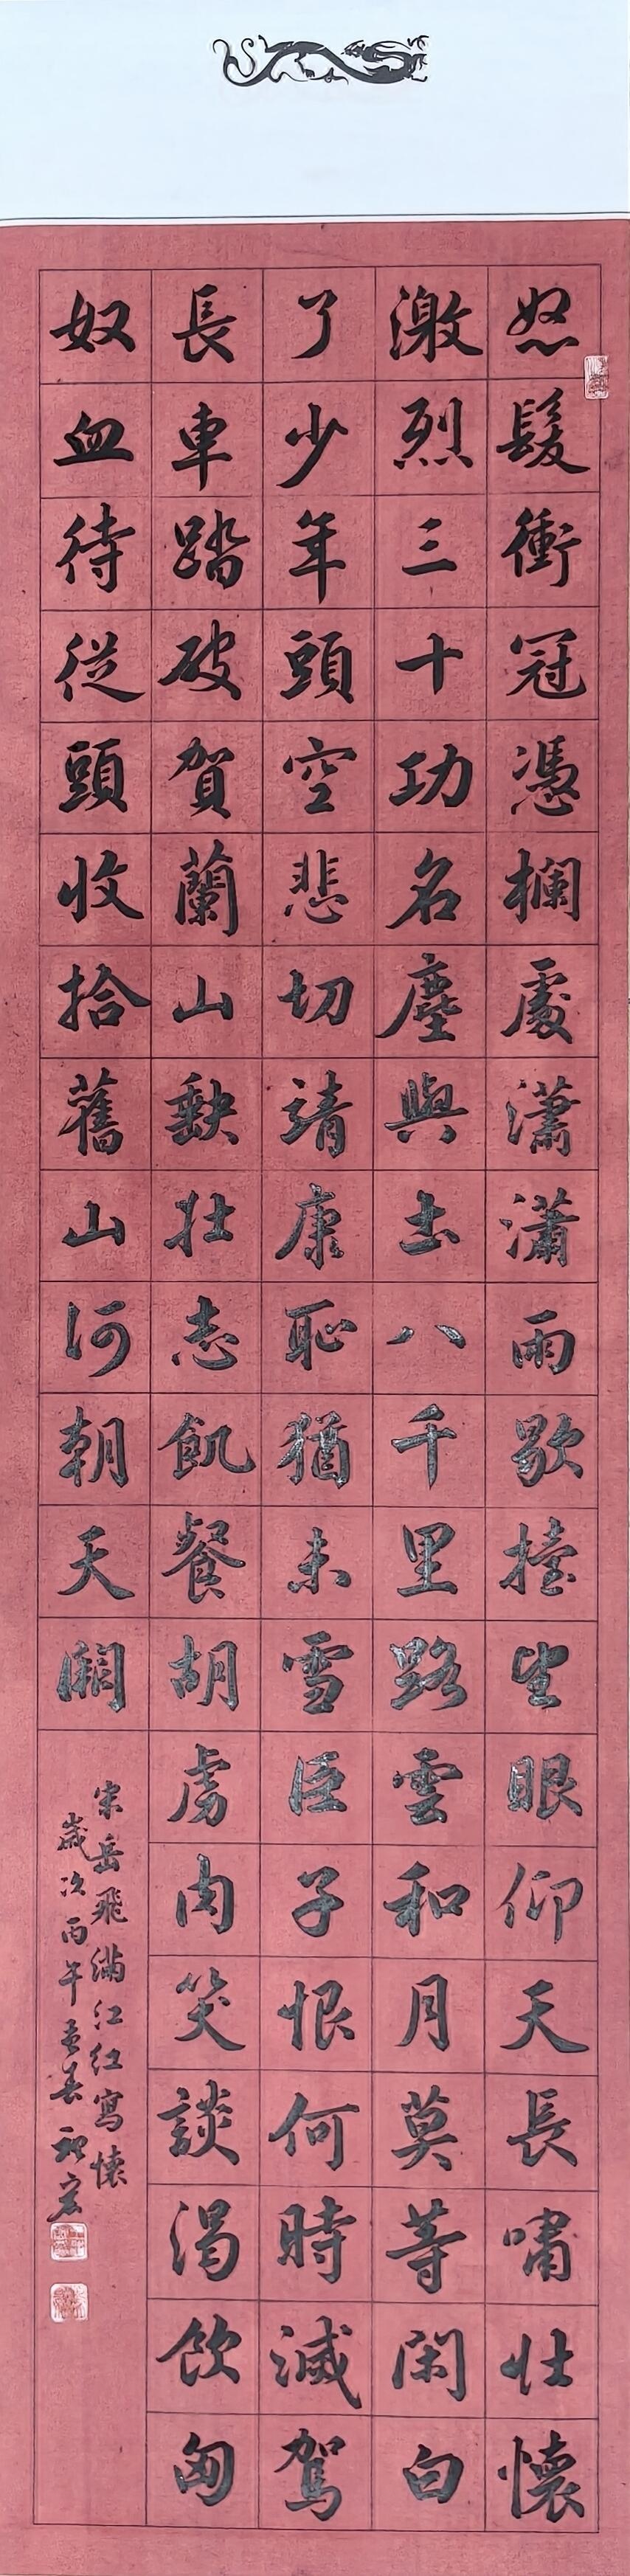 怒髮衝冠憑欄處瀟瀟雨歇擡望眼仰天長嘯壯懷
激烈三十功名塵與土八千里路雲和月莫等閑白
了少年頭空悲切靖康恥猶未雪臣子恨何時滅駕
長車踏破賀蘭山缺壯志飢餐胡虜肉笑談渴飲匈
奴血待從頭收拾舊山河朝天闕
宋岳飛滿江紅寫懷
歲次丙午孟春